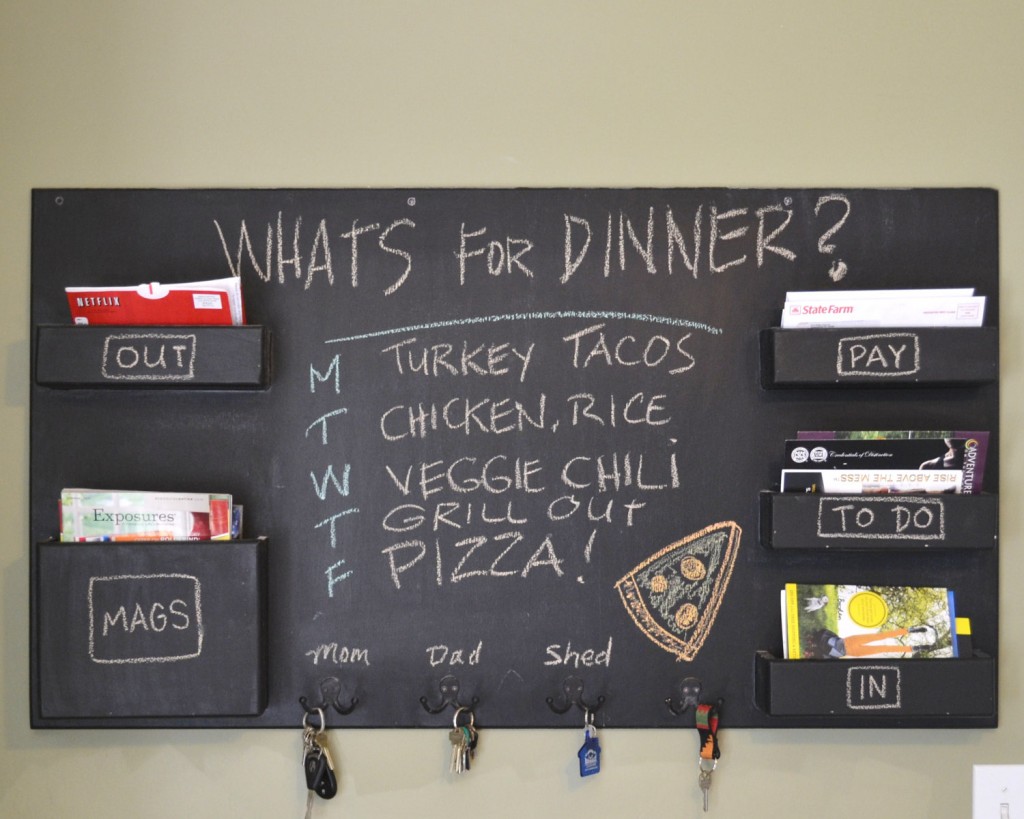 WHATS FOR DINNER?
NETFLIX
OUT
StateFarm
PAY
M TURKEY TACOS
T CHICKEN, RICE
W VEGGIE CHILI
T GRILL OUT
F PIZZA!
Credentials of Distinction
ADVENTURE
RISE ABOVE THE MESS
TO DO
Exposures
MAGS
IN
Mom Dad Shed